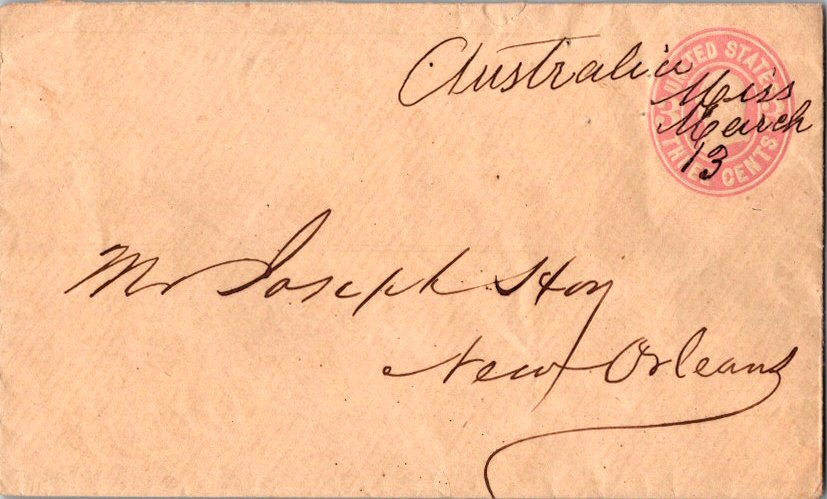 Australia
Miss
March
13
UNITED STATES
THREE CENTS
Mr Joseph Hoy
New Orleans